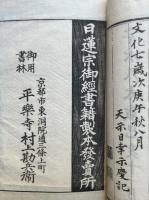 文化七歳次庚午秋八月
天示日幸示璧記
日蓮宗御經書籍製本發賣所
京都市東洞院通三條上町
御用
書林
平樂寺村上勘兵衞